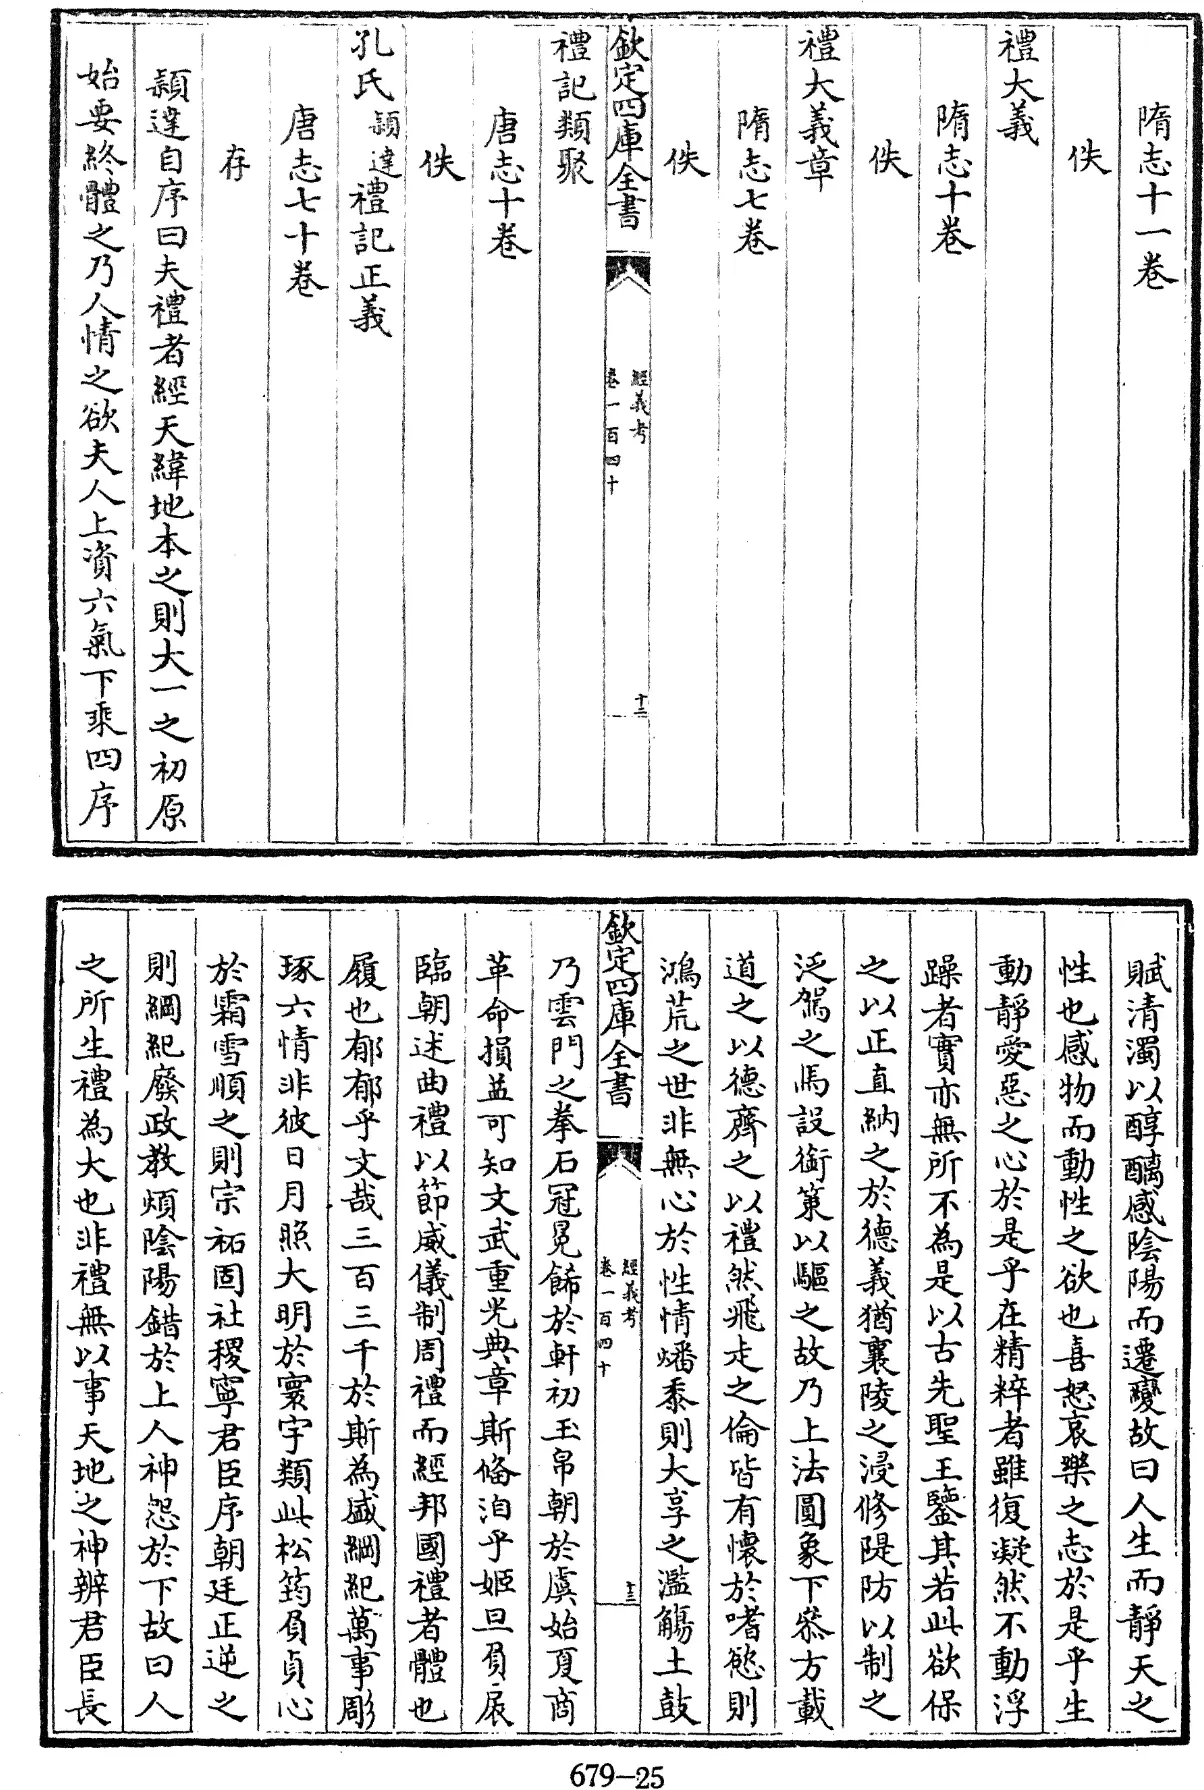 隋志十一卷
佚
禮大義
隋志十卷
佚
禮大義章
隋志七卷
佚
欽定四庫全書
經義考
卷一百四十
十二
禮記類聚
唐志十卷
佚
孔氏頴達禮記正義
唐志七十卷
存
頴達自序曰夫禮者經天緯地本之則大一之初原
始要終體之乃人情之欲夫人上資六氣下乘四序
賦清濁以醇醨感陰陽而遷變故曰人生而靜天之
性也感物而動性之欲也喜怒哀樂之志於是乎生
動靜愛惡之心於是乎在精粹者雖復凝然不動浮
躁者實亦無所不為是以古先聖王鑒其若此欲保
之以正直納之於德義猶襄陵之浸修隄防以制之
泛駕之馬設銜策以驅之故乃上法圓象下叅方載
道之以德齊之以禮然飛走之倫皆有懷於嗜慾則
鴻荒之世非無心於性情燔黍則大享之濫觴土鼓
欽定四庫全書
經義考
卷一百四十
十三
乃雲門之拳石冠冕飾於軒初玉帛朝於虞始夏商
革命損益可知文武重光典章斯備洎乎姬旦負扆
臨朝述曲禮以節威儀制周禮而經邦國禮者體也
履也郁郁乎文哉三百三千於斯為盛綱紀萬事彫
琢六情非彼日月照大明於寰宇類此松筠負貞心
於霜雪順之則宗祏固社稷寧君臣序朝廷正逆之
則綱紀廢政教煩陰陽錯於上人神怨於下故曰人
之所生禮為大也非禮無以事天地之神辨君臣長
679-25